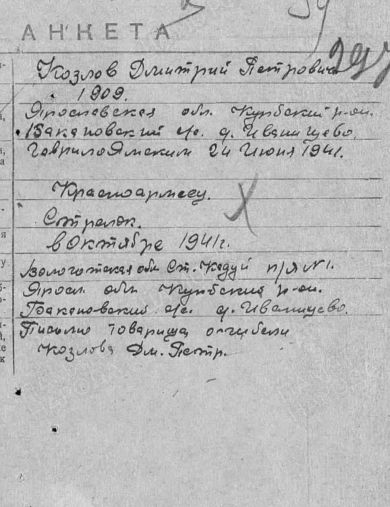 АНКЕТА
Козлов Дмитрий Петрович
1909.
Ярославская обл. Курбский р-он.
Бакановский с/с. д. Иванищево.
Гаврилов Ямским 24 Июня 1941.
Красноармеец.
Стрелок.
в Октябре 1941г.
Вологотская обл Ст. Кадуй п/я №1.
Яросл. обл. Курбский р-он.
Бакановский с/с. д. Иванищево.
Письмо товарища о гибели
Козлова Дм. Петр.